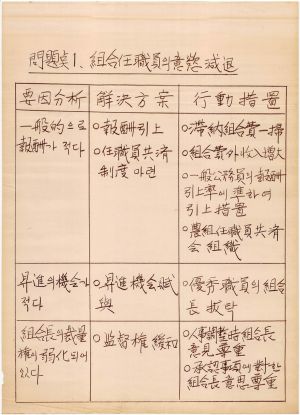 問題点1、組合任職員의意慾減退
要因分析 解決方案 行動措置
一般的으로
報酬가 적다
○報酬引上
○任職員共済
制度 마련
○滯納組合費一掃
○組合費外收入增大
○一般公務員의報酬
引上率에 準하여
引上措置
○農組任職員共済
会 組織
昇進의機会가
적다
○昇進機会賦
與
○優秀職員의組合
長 拔擢
組合長의裁量
權이 弱化되어
있다
○監督權 緩和
○人事調整時組合長
意見尊重
○承認事項에 對한
組合長意思尊重